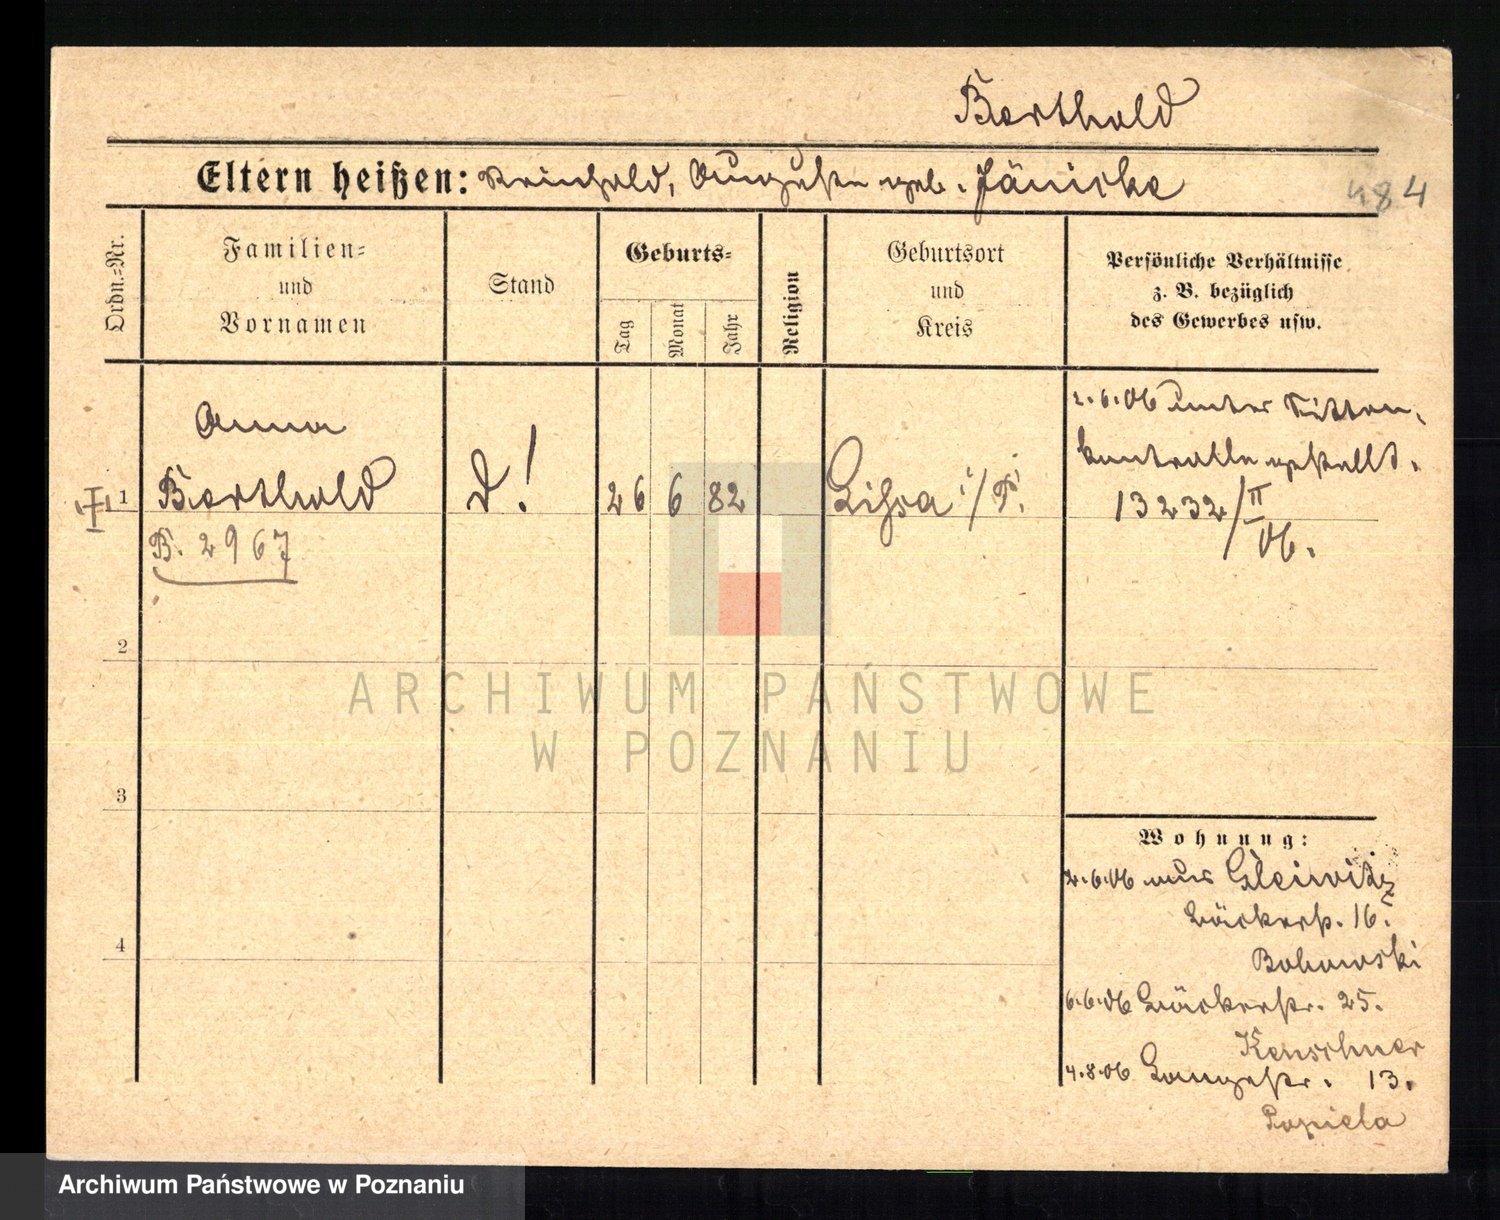 Berthold
Eltern heißen: Reinhold, Auguste geb. Jänicke
484
Ordn.=Nr.
Familien=
und
Vornamen
Stand
Geburts=
Tag
Monat
Jahr
Religion
Geburtsort
und
Kreis
Persönliche Verhältnisse
z. B. bezüglich
des Gewerbes usw.
1
Anna
Berthold
B. 2967
d!
26
6
82
Lissa i/P.
2.6.06 unter Sitten-
kontrolle gestellt.
13232/II
06.
2
3
4
Wohnung:
2.6.06 aus Gleiwitz
Bäckerstr. 16.
6.6.06 Bäckerstr. 25.
Kerschner
4.8.06 Langestr. 13.
Popiela
ARCHIWUM PAŃSTWOWE
W POZNANIU
Archiwum Państwowe w Poznaniu